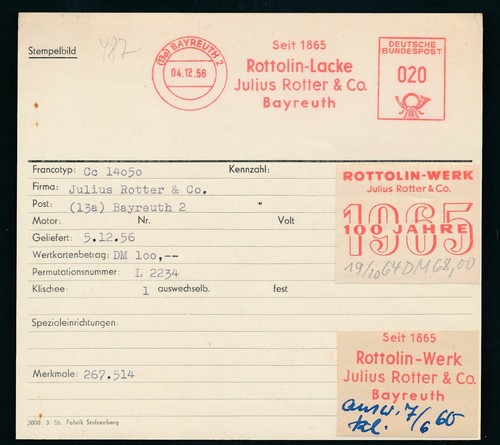 Stempelbild
487
(13a) BAYREUTH 2
04.12.56
Seit 1865
Rottolin-Lacke
Julius Rotter & Co.
Bayreuth
DEUTSCHE
BUNDESPOST
020
Francotyp: Cc 14050 Kennzahl:
Firma: Julius Rotter & Co.
Post: (13a) Bayreuth 2 "
Motor: Nr. Volt
Geliefert: 5.12.56
Wertkartenbetrag: DM 100,--
Permutationsnummer: L 2234
Klischee: 1 auswechselb. fest
Spezialeinrichtungen:
Merkmale: 267.514
3000. 3. 56. Fabrik Stolzenberg
ROTTOLIN-WERK
Julius Rotter & Co.
1965
100 JAHRE
19/10 64 DM 68,00
Seit 1865
Rottolin-Werk
Julius Rotter & Co.
Bayreuth
ausw. 7/6 60